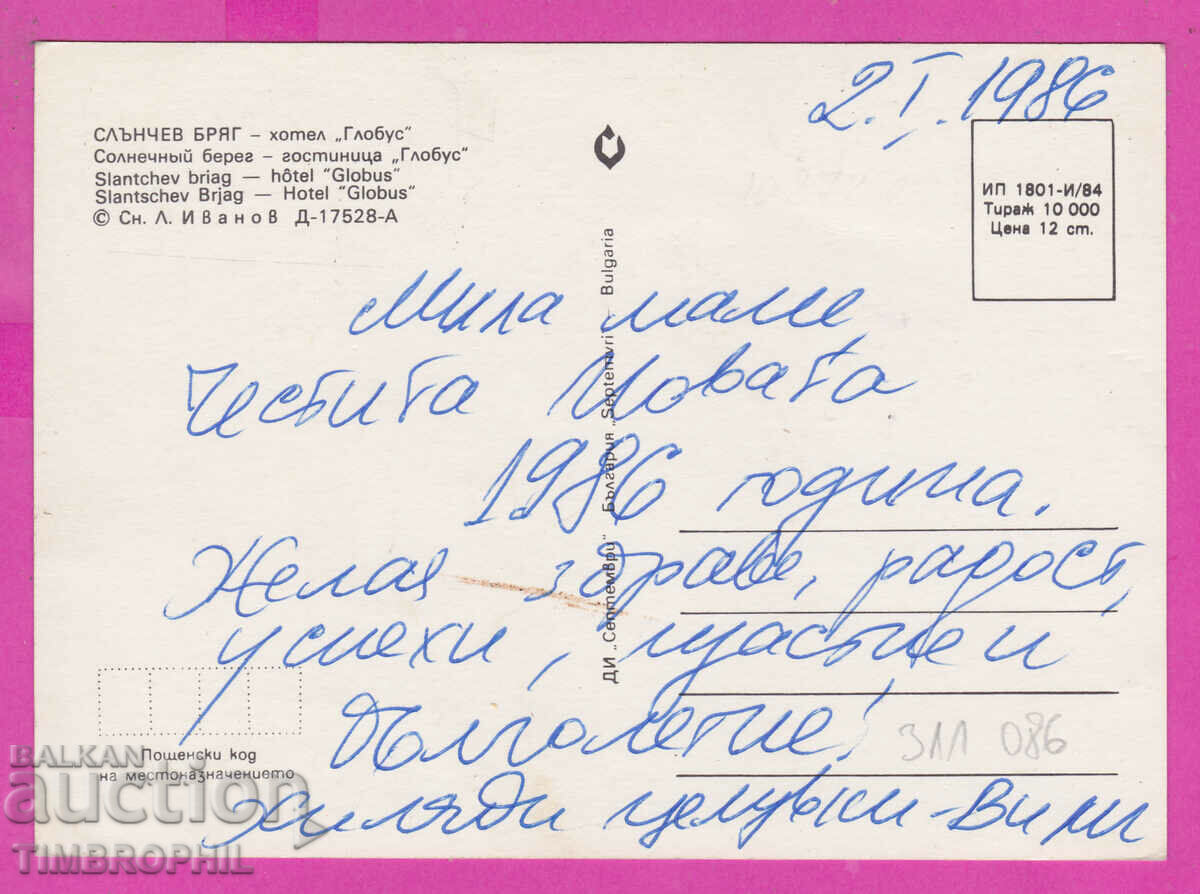 2.I.1986
СЛЪНЧЕВ БРЯГ – хотел „Глобус“
Солнечный берег – гостиница „Глобус“
Slantchev briag — hôtel "Globus"
Slantschev Brjag — Hotel "Globus"
© Сн. Л. Иванов Д-17528-А
ИП 1801-И/84
Тираж 10 000
Цена 12 ст.
ДИ „Септември“ България „Septemvri“ – Bulgaria
Мила маме,
Честита Новата
1986 година.
Желая здраве, радост,
успехи, щастие и
дълголетие!
Хиляди целувки – Вили
ЗЛЛ 086
Пощенски код
на местоназначението
BALKAN
auction
TIMBROPHIL